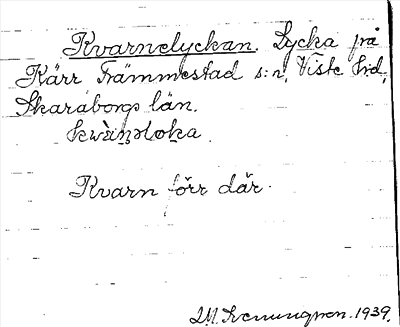 Kvarnelyckan. Lycka på
Kärr Främmestad s:n, Viste hd,
Skaraborgs län.
Kvarn förr där.
1939.